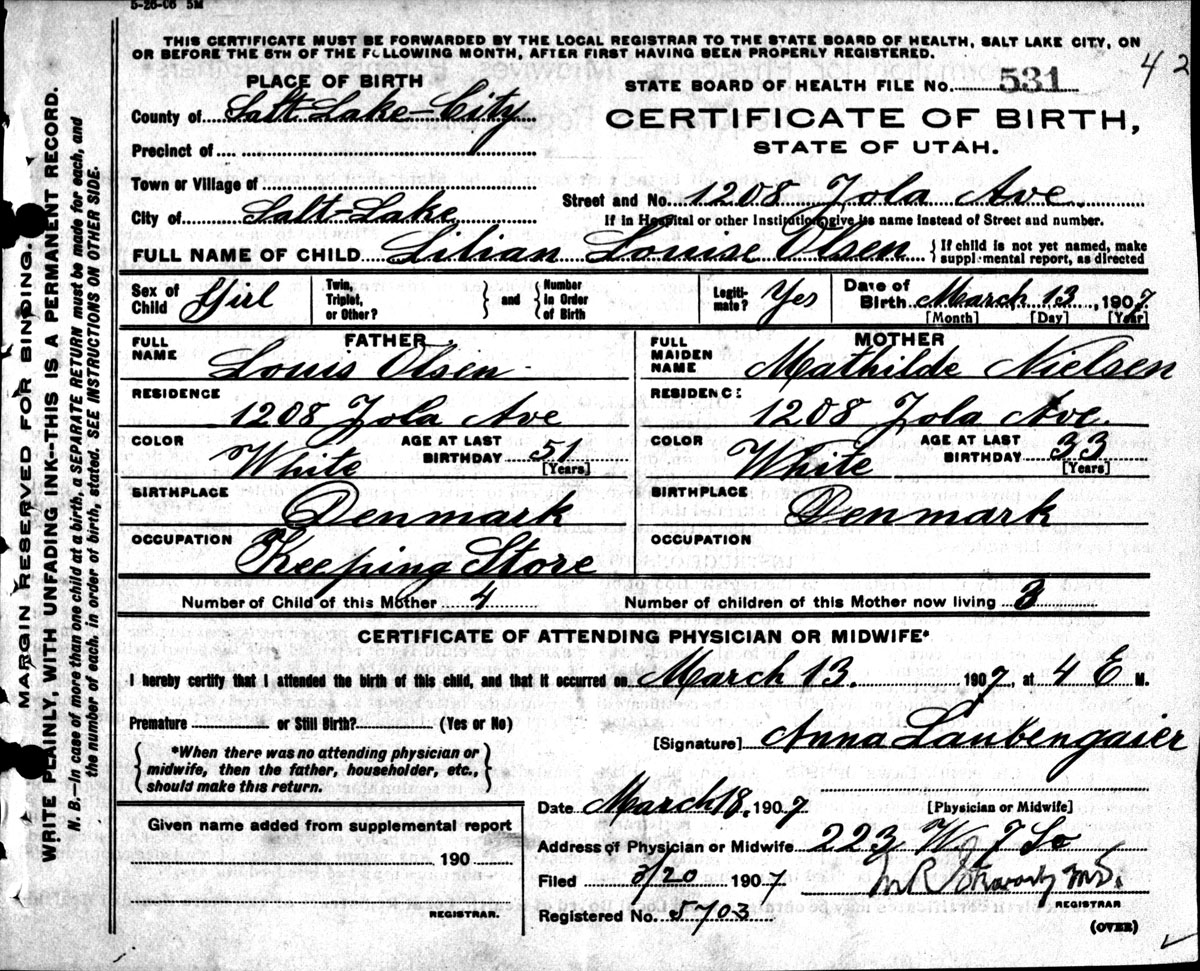 5-26-06 5M
THIS CERTIFICATE MUST BE FORWARDED BY THE LOCAL REGISTRAR TO THE STATE BOARD OF HEALTH, SALT LAKE CITY, ON
OR BEFORE THE 5TH OF THE FOLLOWING MONTH, AFTER FIRST HAVING BEEN PROPERLY REGISTERED.
42
PLACE OF BIRTH
County of Salt Lake City
Precinct of
Town or Village of
City of Salt-Lake
STATE BOARD OF HEALTH FILE NO. 531
CERTIFICATE OF BIRTH,
STATE OF UTAH.
Street and No. 1208 Jola Ave.
If in Hospital or other Institution, give its name instead of Street and number.
FULL NAME OF CHILD Lilian Louise Olsen { If child is not yet named, make
supplemental report, as directed
Sex of Child Girl Twin, Triplet, or Other? } and { Number in Order of Birth Legiti-mate? Yes Date of Birth March 13, 1907
[Month] [Day] [Year]
FATHER
FULL NAME Louis Olsen
RESIDENCE
1208 Jola Ave
COLOR White AGE AT LAST BIRTHDAY 51
[Years]
BIRTHPLACE
Denmark
OCCUPATION
Keeping Store
MOTHER
FULL MAIDEN NAME Mathilde Nielsen
RESIDENCE
1208 Jola Ave.
COLOR White AGE AT LAST BIRTHDAY 33
[Years]
BIRTHPLACE
Denmark
OCCUPATION
Number of Child of this Mother 4 Number of children of this Mother now living 3
CERTIFICATE OF ATTENDING PHYSICIAN OR MIDWIFE*
I hereby certify that I attended the birth of this child, and that it occurred on March 13. 1907, at 4 E M.
Premature or Still Birth? (Yes or No)
{ *When there was no attending physician or
midwife, then the father, householder, etc.,
should make this return. }
[Signature] Anna Laubengaier
[Physician or Midwife]
Given name added from supplemental report
190
REGISTRAR.
Date March 18, 1907
Address of Physician or Midwife 223 W 7 So
Filed 3/20 1907
M.D.
REGISTRAR
Registered No. 5703
(OVER)
MARGIN RESERVED FOR BINDING.
WRITE PLAINLY, WITH UNFADING INK--THIS IS A PERMANENT RECORD.
N. B.--In case of more than one child at a birth, a SEPARATE RETURN must be made for each, and
the number of each, in order of birth, stated. SEE INSTRUCTIONS ON OTHER SIDE.